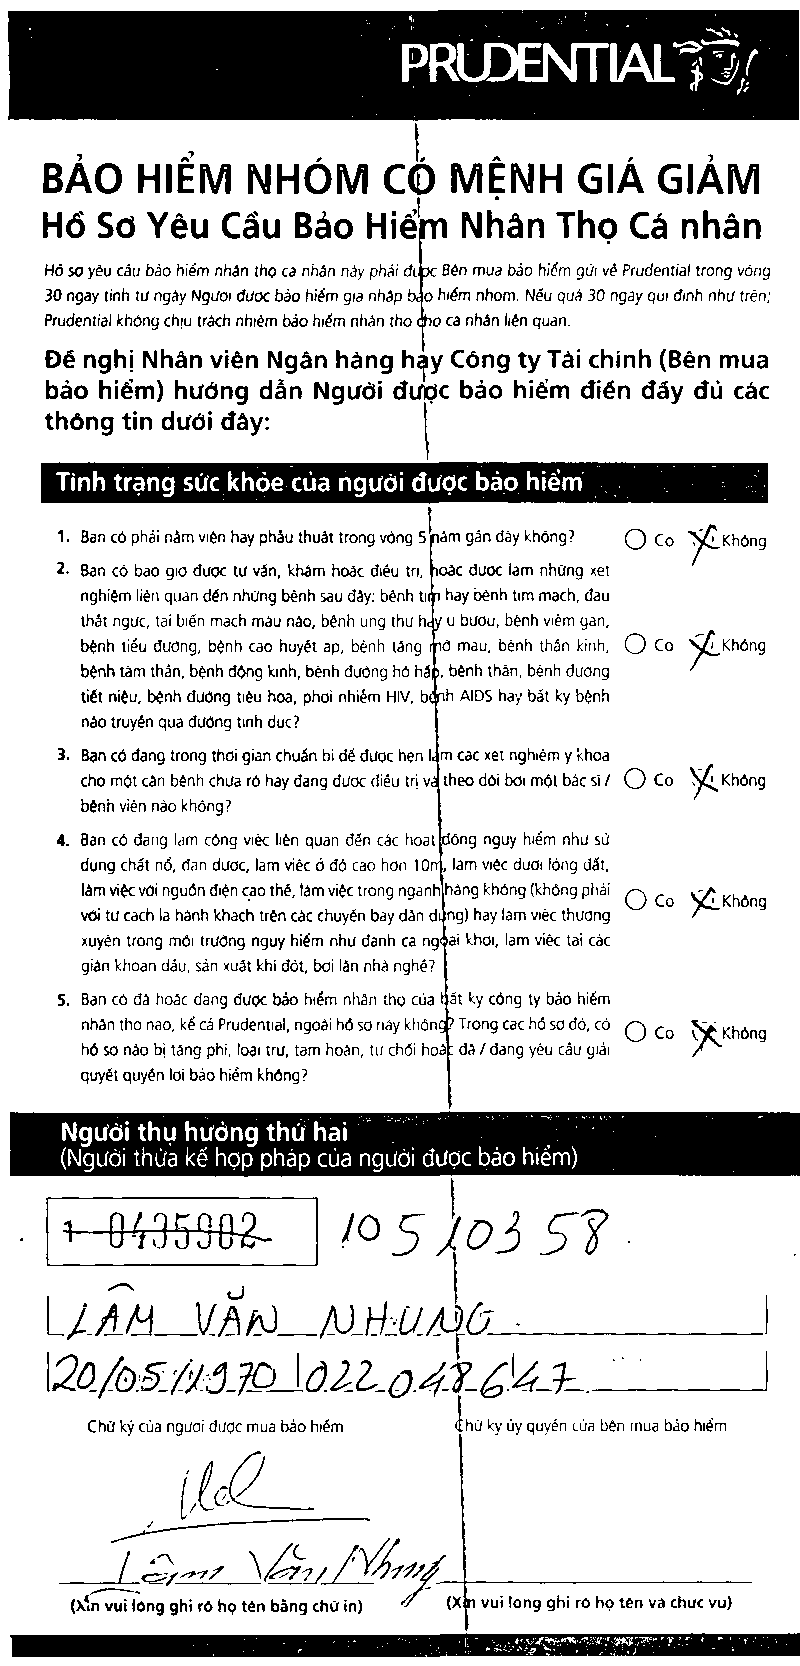 PRUDENTIAL
BẢO HIỂM NHÓM CÓ MỆNH GIÁ GIẢM
Hồ Sơ Yêu Cầu Bảo Hiểm Nhân Thọ Cá nhân
Hồ sơ yêu cầu bảo hiểm nhân thọ cá nhân này phải được Bên mua bảo hiểm gửi về Prudential trong vòng
30 ngày tính từ ngày Người được bảo hiểm gia nhập bảo hiểm nhóm. Nếu quá 30 ngày qui định như trên;
Prudential không chịu trách nhiệm bảo hiểm nhân thọ cho cá nhân liên quan.
Đề nghị Nhân viên Ngân hàng hay Công ty Tài chính (Bên mua
bảo hiểm) hướng dẫn Người được bảo hiểm điền đầy đủ các
thông tin dưới đây:
Tình trạng sức khỏe của người được bảo hiểm
1. Bạn có phải nằm viện hay phẫu thuật trong vòng 5 năm gần đây không? Có Không
2. Bạn có bao giờ được tư vấn, khám hoặc điều trị, hoặc được làm những xét
nghiệm liên quan đến những bệnh sau đây: bệnh tim hay bệnh tim mạch, đau
thắt ngực, tai biến mạch máu não, bệnh ung thư hay u bướu, bệnh viêm gan,
bệnh tiểu đường, bệnh cao huyết áp, bệnh tăng mỡ máu, bệnh thần kinh, Có Không
bệnh tâm thần, bệnh động kinh, bệnh đường hô hấp, bệnh thận, bệnh đường
tiết niệu, bệnh đường tiêu hóa, phơi nhiễm HIV, bệnh AIDS hay bất kỳ bệnh
nào truyền qua đường tình dục?
3. Bạn có đang trong thời gian chuẩn bị để được hẹn làm các xét nghiệm y khoa
cho một căn bệnh chưa rõ hay đang được điều trị và theo dõi bởi một bác sĩ / Có Không
bệnh viện nào không?
4. Bạn có đang làm công việc liên quan đến các hoạt động nguy hiểm như sử
dụng chất nổ, đạn dược, làm việc ở độ cao hơn 10m, làm việc dưới lòng đất,
làm việc với nguồn điện cao thế, làm việc trong ngành hàng không (không phải Có Không
với tư cách là hành khách trên các chuyến bay dân dụng) hay làm việc thường
xuyên trong môi trường nguy hiểm như đánh cá ngoài khơi, làm việc tại các
giàn khoan dầu, sản xuất khí đốt, bơi lặn nhà nghề?
5. Bạn có đã hoặc đang được bảo hiểm nhân thọ của bất kỳ công ty bảo hiểm
nhân thọ nào, kể cả Prudential, ngoài hồ sơ này không? Trong các hồ sơ đó, có Có Không
hồ sơ nào bị tăng phí, loại trừ, tạm hoãn, từ chối hoặc đã / đang yêu cầu giải
quyết quyền lợi bảo hiểm không?
Người thụ hưởng thứ hai
(Người thừa kế hợp pháp của người được bảo hiểm)
1-0435902 10510358
LÂM VĂN NHUNG
20/05/1970 022048647
Chữ ký của người được mua bảo hiểm Chữ ký ủy quyền của bên mua bảo hiểm
Lâm Văn Nhung
(Xin vui lòng ghi rõ họ tên bằng chữ in) (Xin vui lòng ghi rõ họ tên và chức vụ)